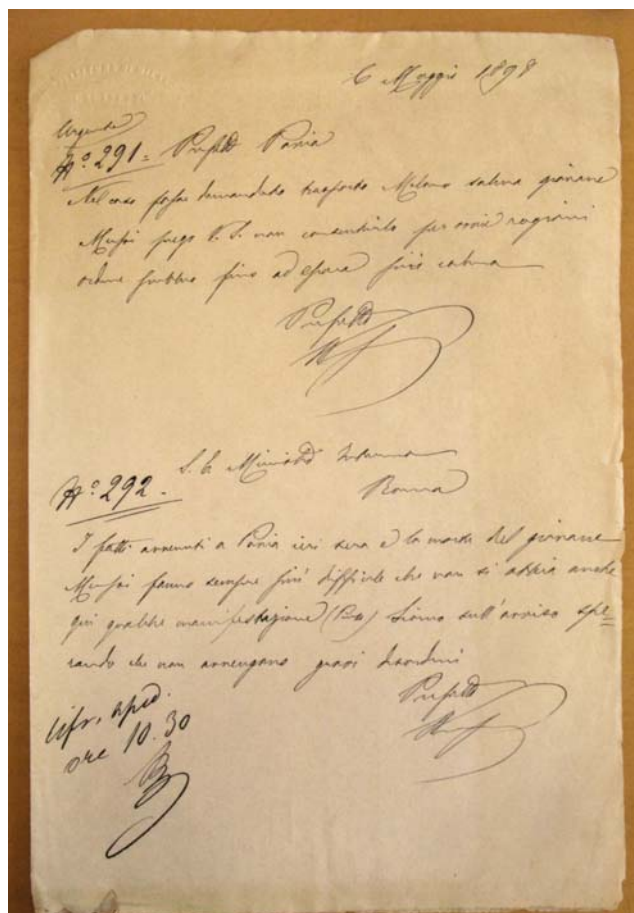 6 Maggio 1898
Urgente
N.º 291 = Prefetto Pavia
Nel caso fosse domandato trasporto Milano salma giovane
Mussi prego V. S. non consentirlo per ovvie ragioni
ordine pubblico fino ad epoca più calma
Prefetto
S. E. Ministro Interno
N.º 292 =
Roma
I fatti avvenuti a Pavia ieri sera e la morte del giovane
Mussi fanno sempre più difficile che non si abbia anche
qui qualche manifestazione Siamo sull'avviso spe=
rando che non avvengano gravi disordini
Prefetto
Cifr. sped.
ore 10.30